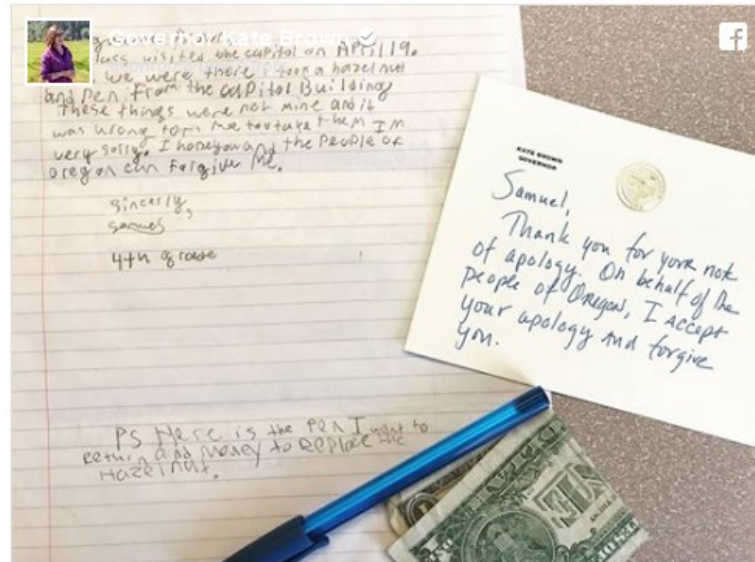 Governor Kate Brown
class visited the capitol on APril 19.
we were there I took a hazel nut
and Pen From the caPitol Building
These things were not mine and it
was wrong for me to take them I'm
very sorry. I hope you and the PeoPle of
oregon can Forgive Me.
sincerly,
samuel
4th grade
PS Here is the PeN I want to
Return and Money to RePlace the
Hazelnut.
KATE BROWN
GOVERNOR
Samuel,
Thank you for your note
of apology. On behalf of the
people of Oregon, I accept
your apology and forgive
you.
f
ONE